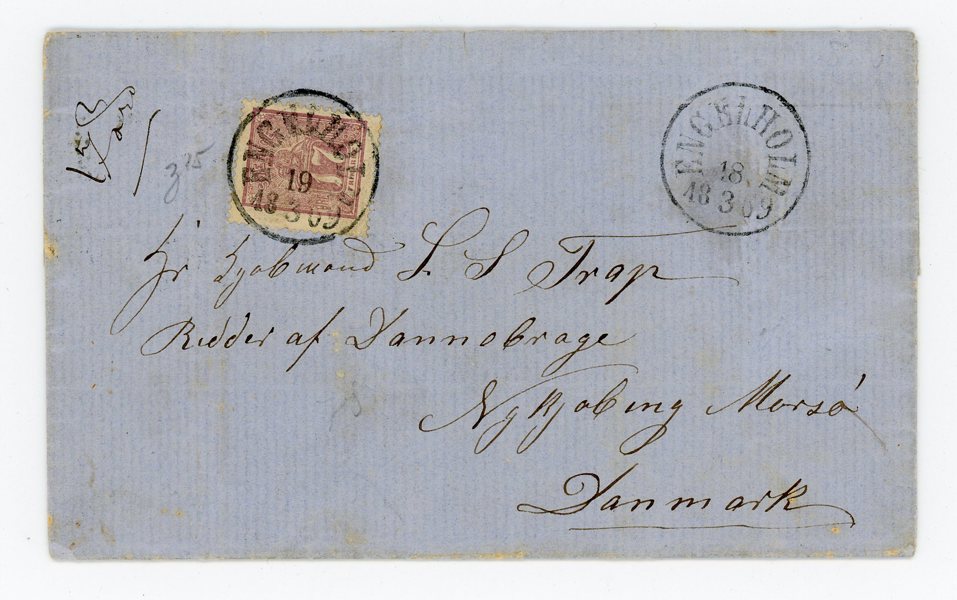 ENGELHOLM
19
18 3 69
7
ENGELHOLM
18
18 3 69
Hr Kjøbmand L. S Trap
Ridder af Dannobrage
Nykjøbing Morsø
Danmark